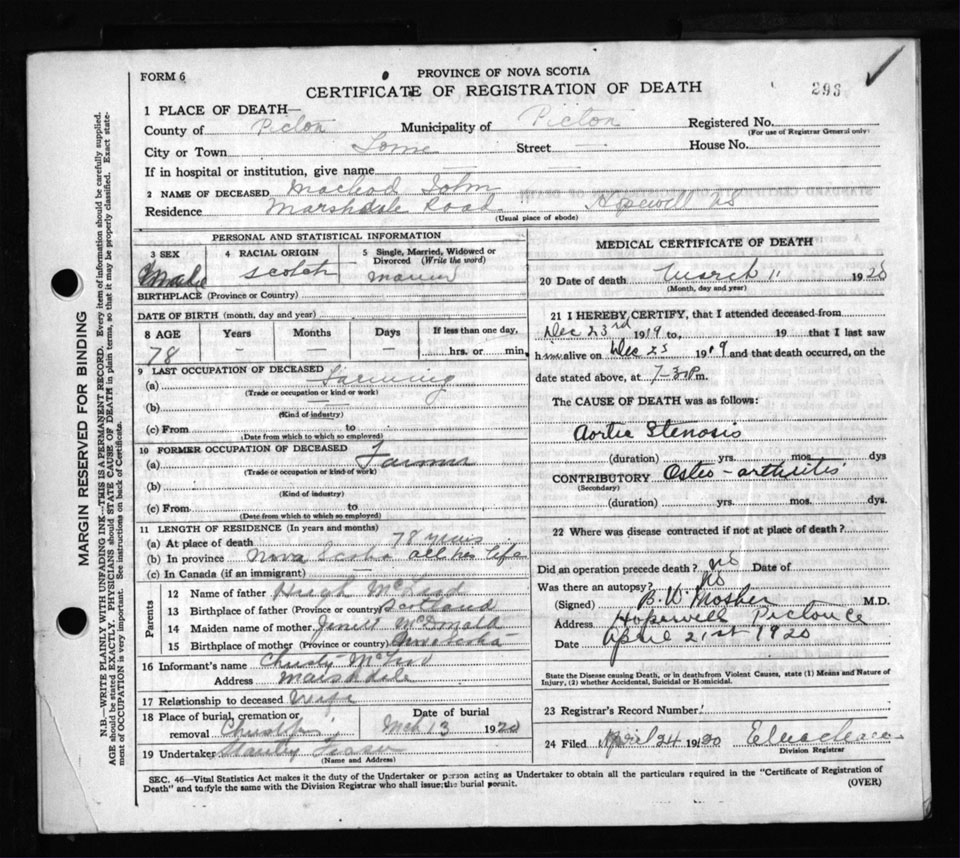 FORM 6
PROVINCE OF NOVA SCOTIA
CERTIFICATE OF REGISTRATION OF DEATH
293
1 PLACE OF DEATH—
County of Pictou Municipality of Pictou Registered No.
(For use of Registrar General only)
City or Town Lorne Street — House No.
If in hospital or institution, give name —
2 NAME OF DECEASED Macleod John
Residence Marshdale Road Hopewell NS
(Usual place of abode)
PERSONAL AND STATISTICAL INFORMATION
3 SEX Male
4 RACIAL ORIGIN Scotch
5 Single, Married, Widowed or Divorced (Write the word)
BIRTHPLACE (Province or Country)
DATE OF BIRTH (month, day and year)
8 AGE Years Months Days If less than one day,
78 — — — hrs. or min.
9 LAST OCCUPATION OF DECEASED
(a) Farming
(Trade or occupation or kind or work)
(b) —
(Kind of industry)
(c) From to
(Date from which to which so employed)
10 FORMER OCCUPATION OF DECEASED
(a) Farmer
(Trade or occupation or kind or work)
(b)
(Kind of industry)
(c) From to
(Date from which to which so employed)
11 LENGTH OF RESIDENCE (In years and months)
(a) At place of death 78 years
(b) In province Nova Scotia all his life
(c) In Canada (if an immigrant) —
Parents
12 Name of father Hugh McLeod
13 Birthplace of father (Province or country) Scotland
14 Maiden name of mother McDonald
15 Birthplace of mother (Province or country) Nova Scotia
16 Informant's name Christy McLeod
Address Marshdale
17 Relationship to deceased Wife
18 Place of burial, cremation or removal
Date of burial Mch 13 1920
19 Undertaker Stanley Fraser
(Name and Address)
MEDICAL CERTIFICATE OF DEATH
20 Date of death March 11 1920
(Month, day and year)
21 I HEREBY CERTIFY, that I attended deceased from
Dec 23rd 1919 to, 19 that I last saw
him alive on Dec 23 1919 and that death occurred, on the
date stated above, at 7-30 Pm.
The CAUSE OF DEATH was as follows:
Aortic Stenosis
(duration) yrs. mos. dys
CONTRIBUTORY Osteo-arthritis
(Secondary)
(duration) yrs. mos. dys.
22 Where was disease contracted if not at place of death?
Did an operation precede death? no Date of
Was there an autopsy? no
(Signed) B. W. Mosher M.D.
Address Hopewell Pictou Co
Date April 21st 1920
State the Disease causing Death, or in death from Violent Causes, state (1) Means and Nature of
Injury, (2) whether Accidental, Suicidal or Homicidal.
23 Registrar's Record Number
24 Filed April 24 1920
Division Registrar
SEC. 46—Vital Statistics Act makes it the duty of the Undertaker or person acting as Undertaker to obtain all the particulars required in the "Certificate of Registration of
Death" and to fyle the same with the Division Registrar who shall issue the burial permit. (OVER)
MARGIN RESERVED FOR BINDING
N.B.—WRITE PLAINLY WITH UNFADING INK—THIS IS A PERMANENT RECORD. Every item of information should be carefully supplied.
AGE should be stated EXACTLY. PHYSICIANS should STATE CAUSE OF DEATH in plain terms, so that it may be properly classified. Exact state-
ment of OCCUPATION is very important. See instructions on back of Certificate.